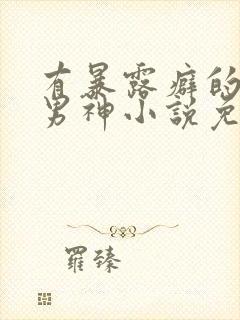 有暴露癖的
男神小説免
羅臻